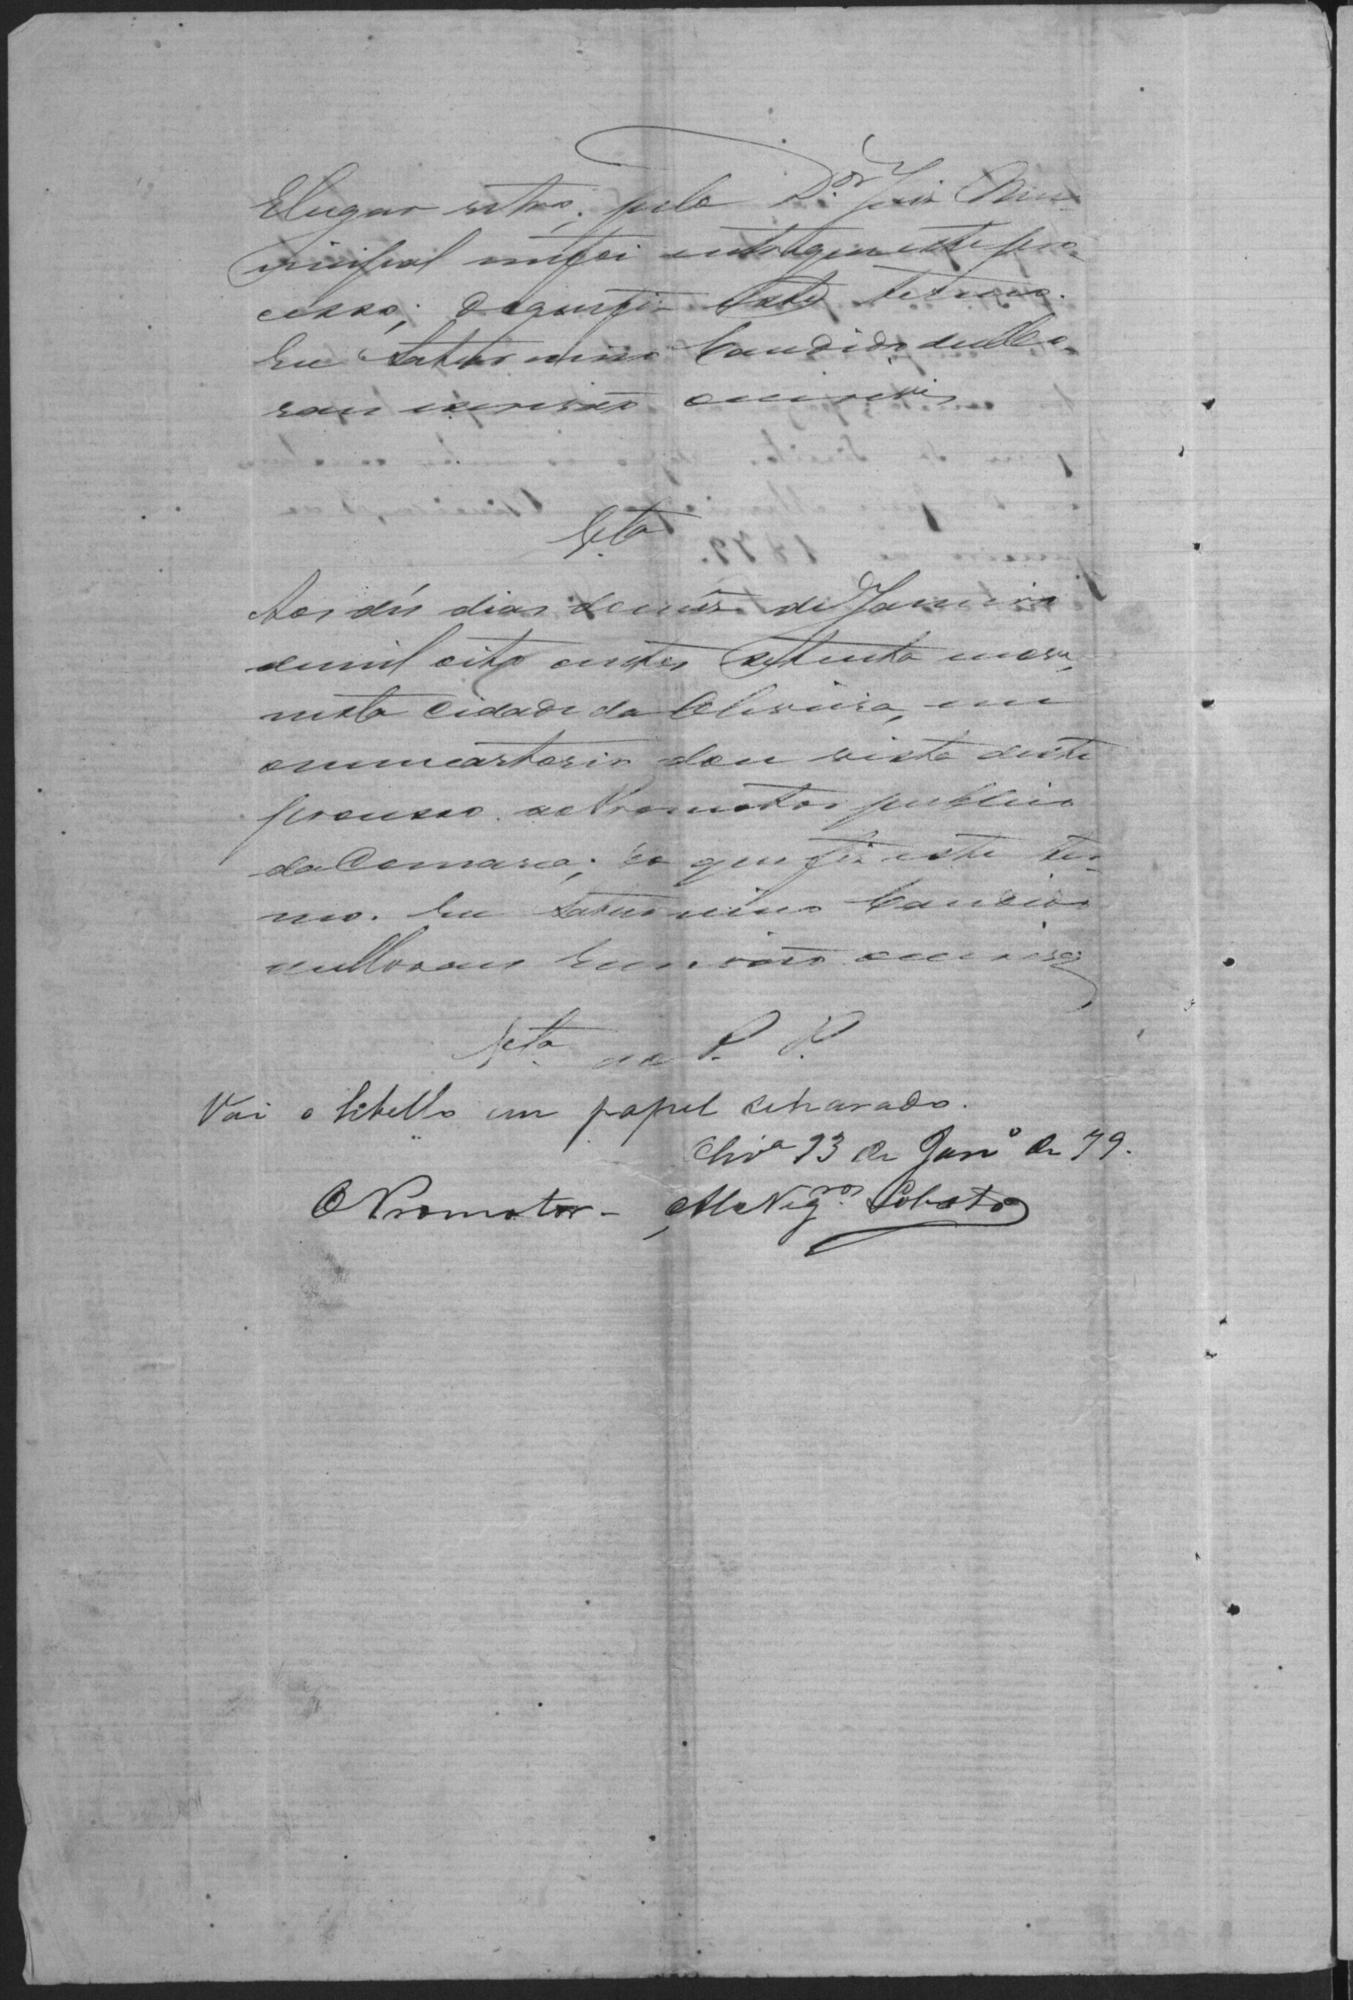 E lugar retro, pelo D.or Juiz Mu-
nicipal me foi entregue este pro-
cesso; do que fiz este termo.
Eu Saturnino Candido de Mo-
raes escrivão o escrevi
V.ta
Aos dés dias do mês de Janeiro
de mil oito centos setenta e nove,
nesta Cidade da Oliveira, em
o meu cartorio dou vista deste
processo ao Promotor publico
da Comarca; do que fiz este ter-
mo. Eu Saturnino Candido
de Moraes Escrivão o escrevi
V.ta ao P. P.
Vai o libello em papel separado.
Oliv.a 13 de Jan.o de 79.
O Promotor - Lobato